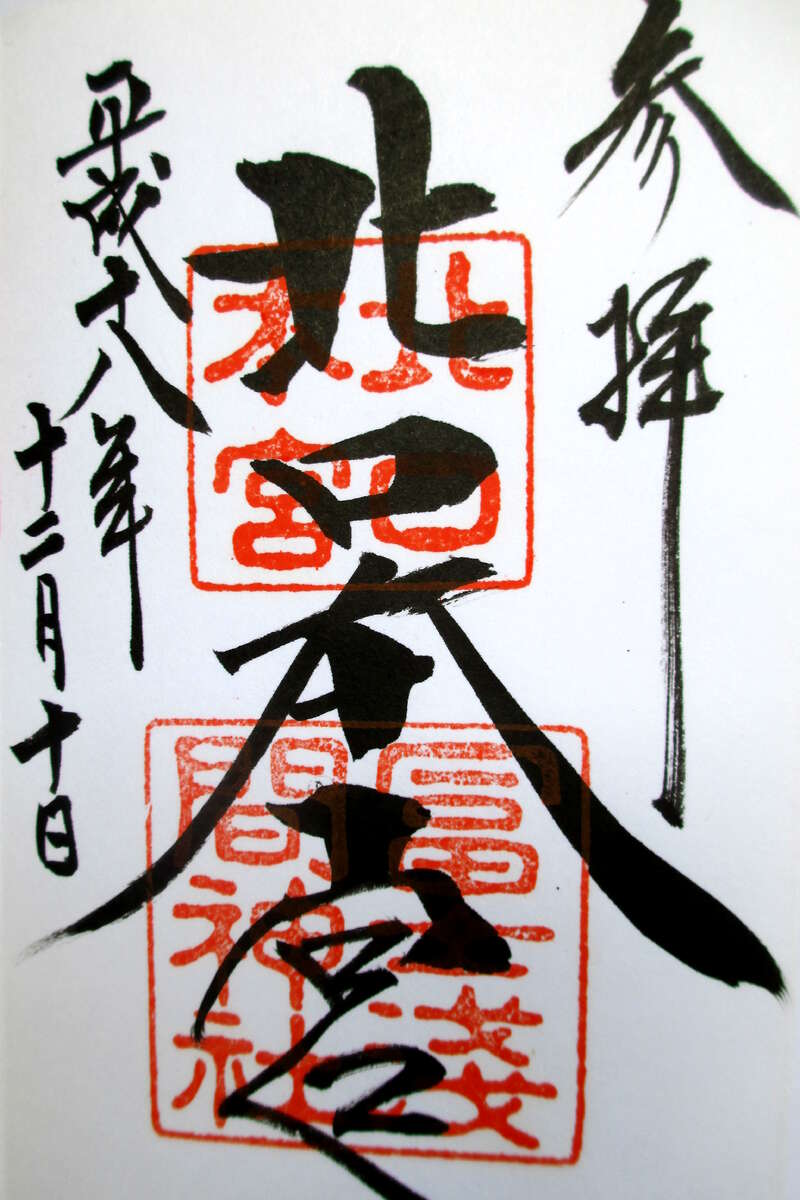 参拝
北口本宮
平成十八年
十二月十日
北口
本宮
冨士浅
間神社